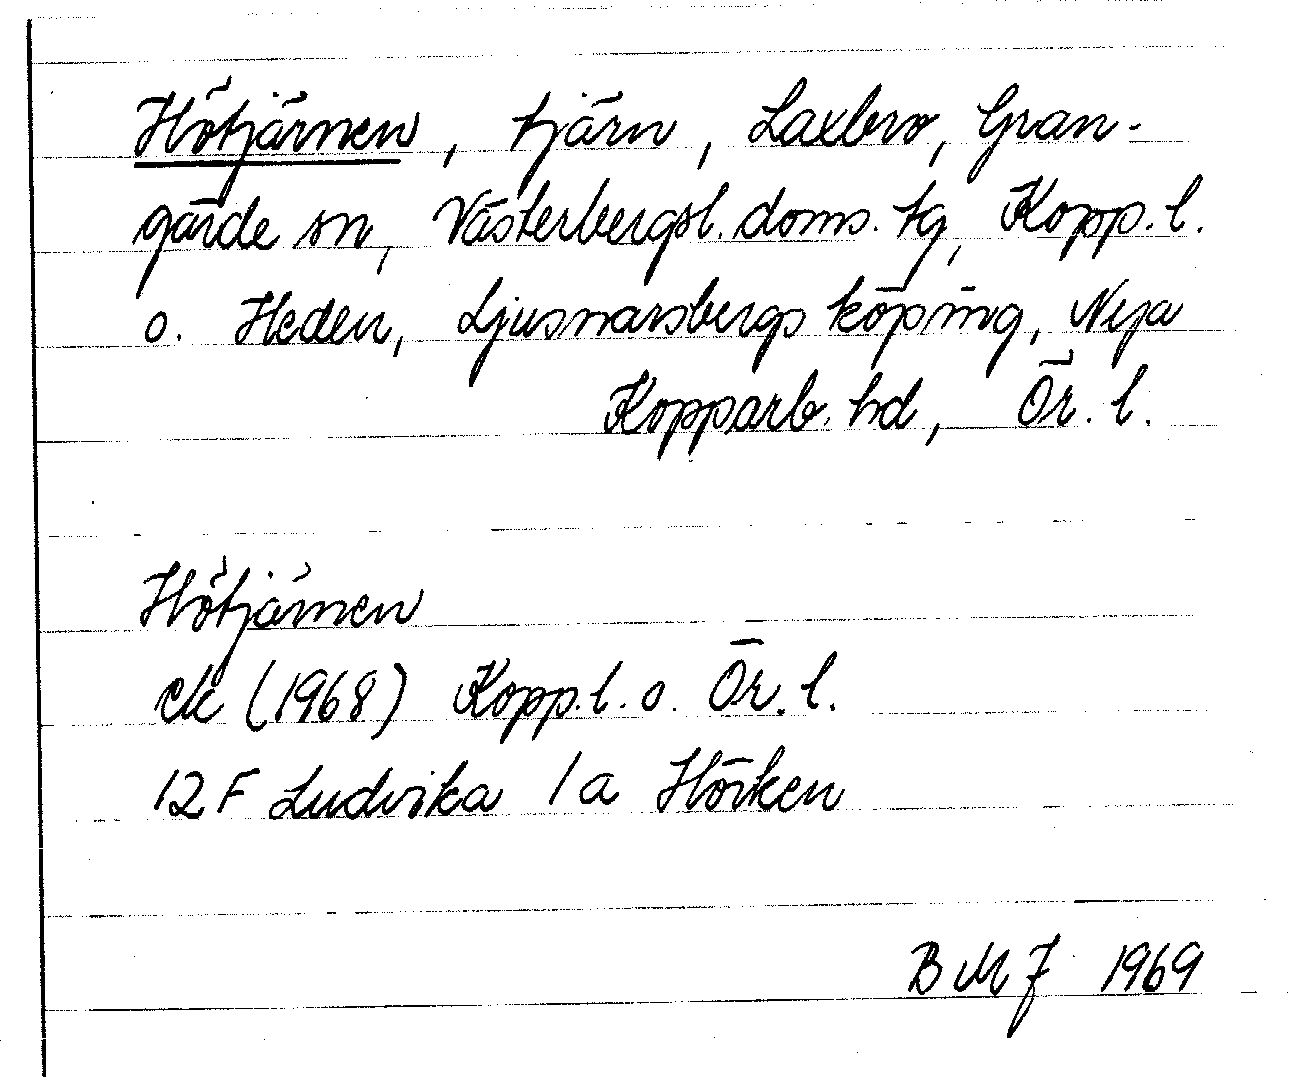 Hötjärnen, tjärn, Laxbro, Gran-
gärde sn, Västerbergsl. doms. tg, Kopp. l.
o. Heden, Ljusnarsbergs köping, Nya
Kopparb. hd, Ör. l.
Hötjärnen
ek (1968) Kopp. l. o. Ör. l.
12 F Ludvika 1 a Hörken
B M J 1969